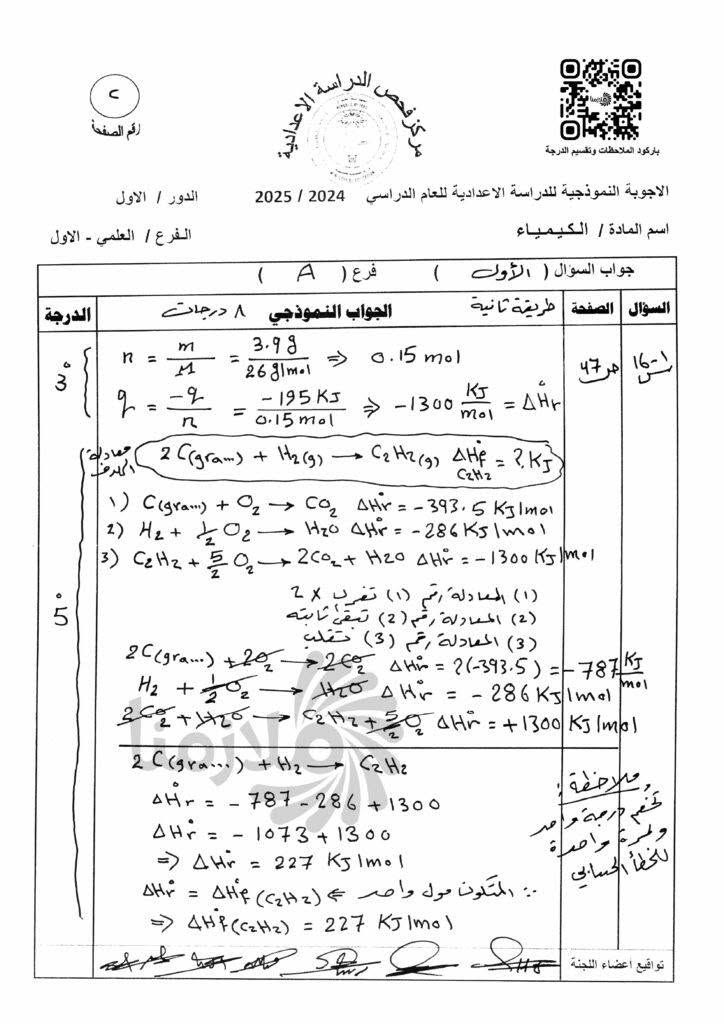 ٢
رقم الصفحة
مركز فحص الدراسة الاعدادية
باركود الملاحظات وتقسيم الدرجة
الاجوبة النموذجية للدراسة الاعدادية للعام الدراسي 2024 / 2025 الدور / الاول
اسم المادة / الكيمياء الفرع / العلمي - الاول
جواب السؤال ( الأول ) فرع ( A )
السؤال الصفحة طريقة ثانية الجواب النموذجي ٨ درجات الدرجة
١-١٦ س ص ٤٧
n = m/M = 3.9 g / 26 g/mol ⇒ 0.15 mol
3°
q = -q/n = -195 KJ / 0.15 mol ⇒ -1300 KJ/mol = ΔH°r
معادلة الهدف
2C(gram..) + H2(g) → C2H2(g) ΔH°f C2H2 = ?. KJ
1) C(gra...) + O2 → CO2 ΔH°r = -393.5 KJ/mol
2) H2 + 1/2 O2 → H2O ΔH°r = -286 KJ/mol
3) C2H2 + 5/2 O2 → 2CO2 + H2O ΔH°r = -1300 KJ/mol
5°
(1) المعادلة رقم (1) تضرب × 2
(2) المعادلة رقم (2) تبقى ثابته
(3) المعادلة رقم (3) تقلب
2C(gra...) + 2O2 → 2CO2 ΔH°r = 2(-393.5) = -787 KJ/mol
H2 + 1/2 O2 → H2O ΔH°r = -286 KJ/mol
2CO2 + H2O → C2H2 + 5/2 O2 ΔH°r = +1300 KJ/mol
ملازمنا
2C(gra....) + H2 → C2H2
ΔH°r = -787 - 286 + 1300
ΔH°r = -1073 + 1300
⇒ ΔH°r = 227 KJ/mol
ΔH°r = ΔH°f (C2H2) ⇐ المتكون مول واحد ∵
⇒ ΔH°f (C2H2) = 227 KJ/mol
ملاحظة :
تخصم درجة واحد
ولمرة واحدة
للخطأ الحسابي
تواقيع اعضاء اللجنة